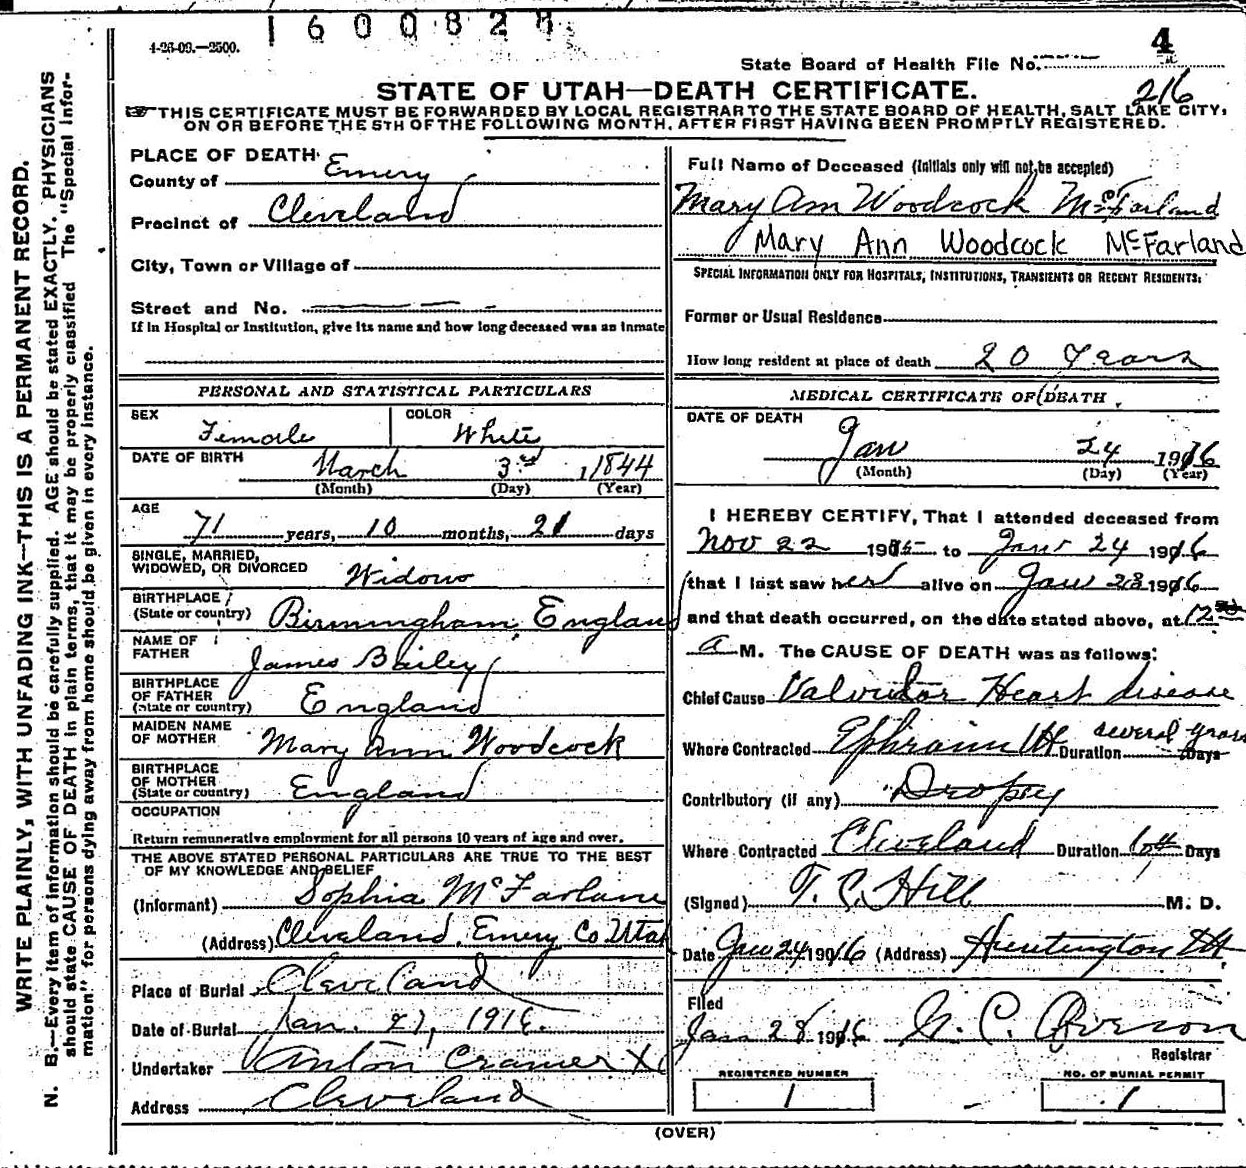 1600828
4-26-09.—2500.
4
State Board of Health File No.
216
STATE OF UTAH—DEATH CERTIFICATE.
THIS CERTIFICATE MUST BE FORWARDED BY LOCAL REGISTRAR TO THE STATE BOARD OF HEALTH, SALT LAKE CITY,
ON OR BEFORE THE 5TH OF THE FOLLOWING MONTH, AFTER FIRST HAVING BEEN PROMPTLY REGISTERED.
WRITE PLAINLY, WITH UNFADING INK—THIS IS A PERMANENT RECORD.
N. B.—Every item of information should be carefully supplied. AGE should be stated EXACTLY. PHYSICIANS
should state CAUSE OF DEATH in plain terms, that it may be properly classified The "Special Infor-
mation" for persons dying away from home should be given in every instance.
PLACE OF DEATH
County of Emery
Precinct of Cleveland
City, Town or Village of
Street and No.
If in Hospital or Institution, give its name and how long deceased was an inmate
PERSONAL AND STATISTICAL PARTICULARS
SEX Female COLOR White
DATE OF BIRTH March 3rd 1844
(Month) (Day) (Year)
AGE
71 years, 10 months, 21 days
SINGLE, MARRIED,
WIDOWED, OR DIVORCED Widow
BIRTHPLACE
(State or country) Birmingham, England
NAME OF
FATHER James Bailey
BIRTHPLACE
OF FATHER
(State or country) England
MAIDEN NAME
OF MOTHER Mary Ann Woodcock
BIRTHPLACE
OF MOTHER
(State or country) England
OCCUPATION
Return remunerative employment for all persons 10 years of age and over.
THE ABOVE STATED PERSONAL PARTICULARS ARE TRUE TO THE BEST
OF MY KNOWLEDGE AND BELIEF
(Informant) Sophia McFarlane
(Address) Cleveland, Emery Co Utah
Place of Burial Cleveland
Date of Burial Jan. 27, 1916.
Undertaker Anton Cramer
Address Cleveland
Full Name of Deceased (Initials only will not be accepted)
Mary Ann Woodcock McFarland
Mary Ann Woodcock McFarland
SPECIAL INFORMATION ONLY FOR HOSPITALS, INSTITUTIONS, TRANSIENTS OR RECENT RESIDENTS:
Former or Usual Residence
How long resident at place of death 20 Years
MEDICAL CERTIFICATE OF DEATH
DATE OF DEATH
Jan 24 1916
(Month) (Day) (Year)
I HEREBY CERTIFY, That I attended deceased from
Nov 22 1915 to Jan 24 1916
that I last saw her alive on Jan 23 1916
and that death occurred, on the date stated above, at 12
a M. The CAUSE OF DEATH was as follows:
Chief Cause Valvular Heart disease
Where Contracted Ephraim Ut Duration several years Days
Contributory (if any) Dropsy
Where Contracted Cleveland Duration 60 Days
(Signed) T. C. Hill M. D.
Date Jan 24 1916 (Address) Huntington Ut.
Filed
Jan 28 1916
Registrar
REGISTERED NUMBER
1
NO. OF BURIAL PERMIT
1
(OVER)